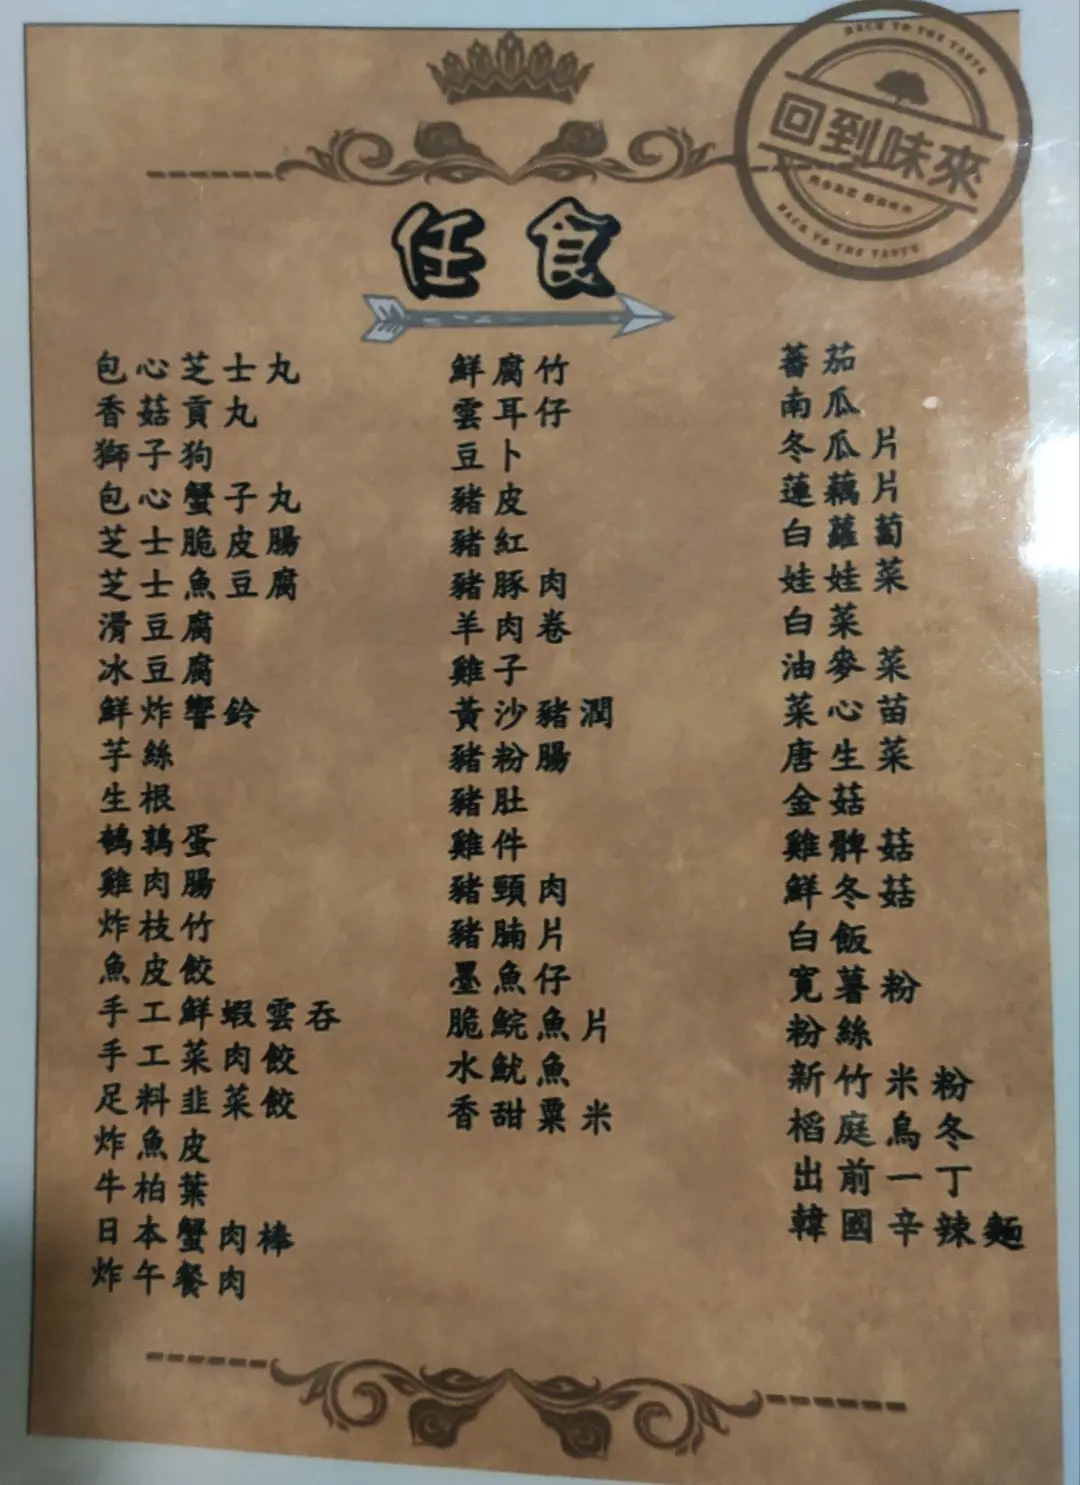 BACK TO THE TASTE
回到味來
BACK TO THE TASTE
任食
包心芝士丸
香菇貢丸
獅子狗
包心蟹子丸
芝士脆皮腸
芝士魚豆腐
滑豆腐
冰豆腐
鮮炸響鈴
芋絲
生根
鵪鶉蛋
雞肉腸
炸枝竹
魚皮餃
手工鮮蝦雲吞
手工菜肉餃
足料韭菜餃
炸魚皮
牛柏葉
日本蟹肉棒
炸午餐肉
鮮腐竹
雲耳仔
豆卜
豬皮
豬紅
豬豚肉
羊肉卷
雞子
黃沙豬潤
豬粉腸
豬肚
雞件
豬頸肉
豬腩片
墨魚仔
脆鯇魚片
水魷魚
香甜粟米
蕃茄
南瓜
冬瓜片
蓮藕片
白蘿蔔
娃娃菜
白菜
油麥菜
菜心苗
唐生菜
金菇
雞髀菇
鮮冬菇
白飯
寬薯粉
粉絲
新竹米粉
稻庭烏冬
出前一丁
韓國辛辣麵